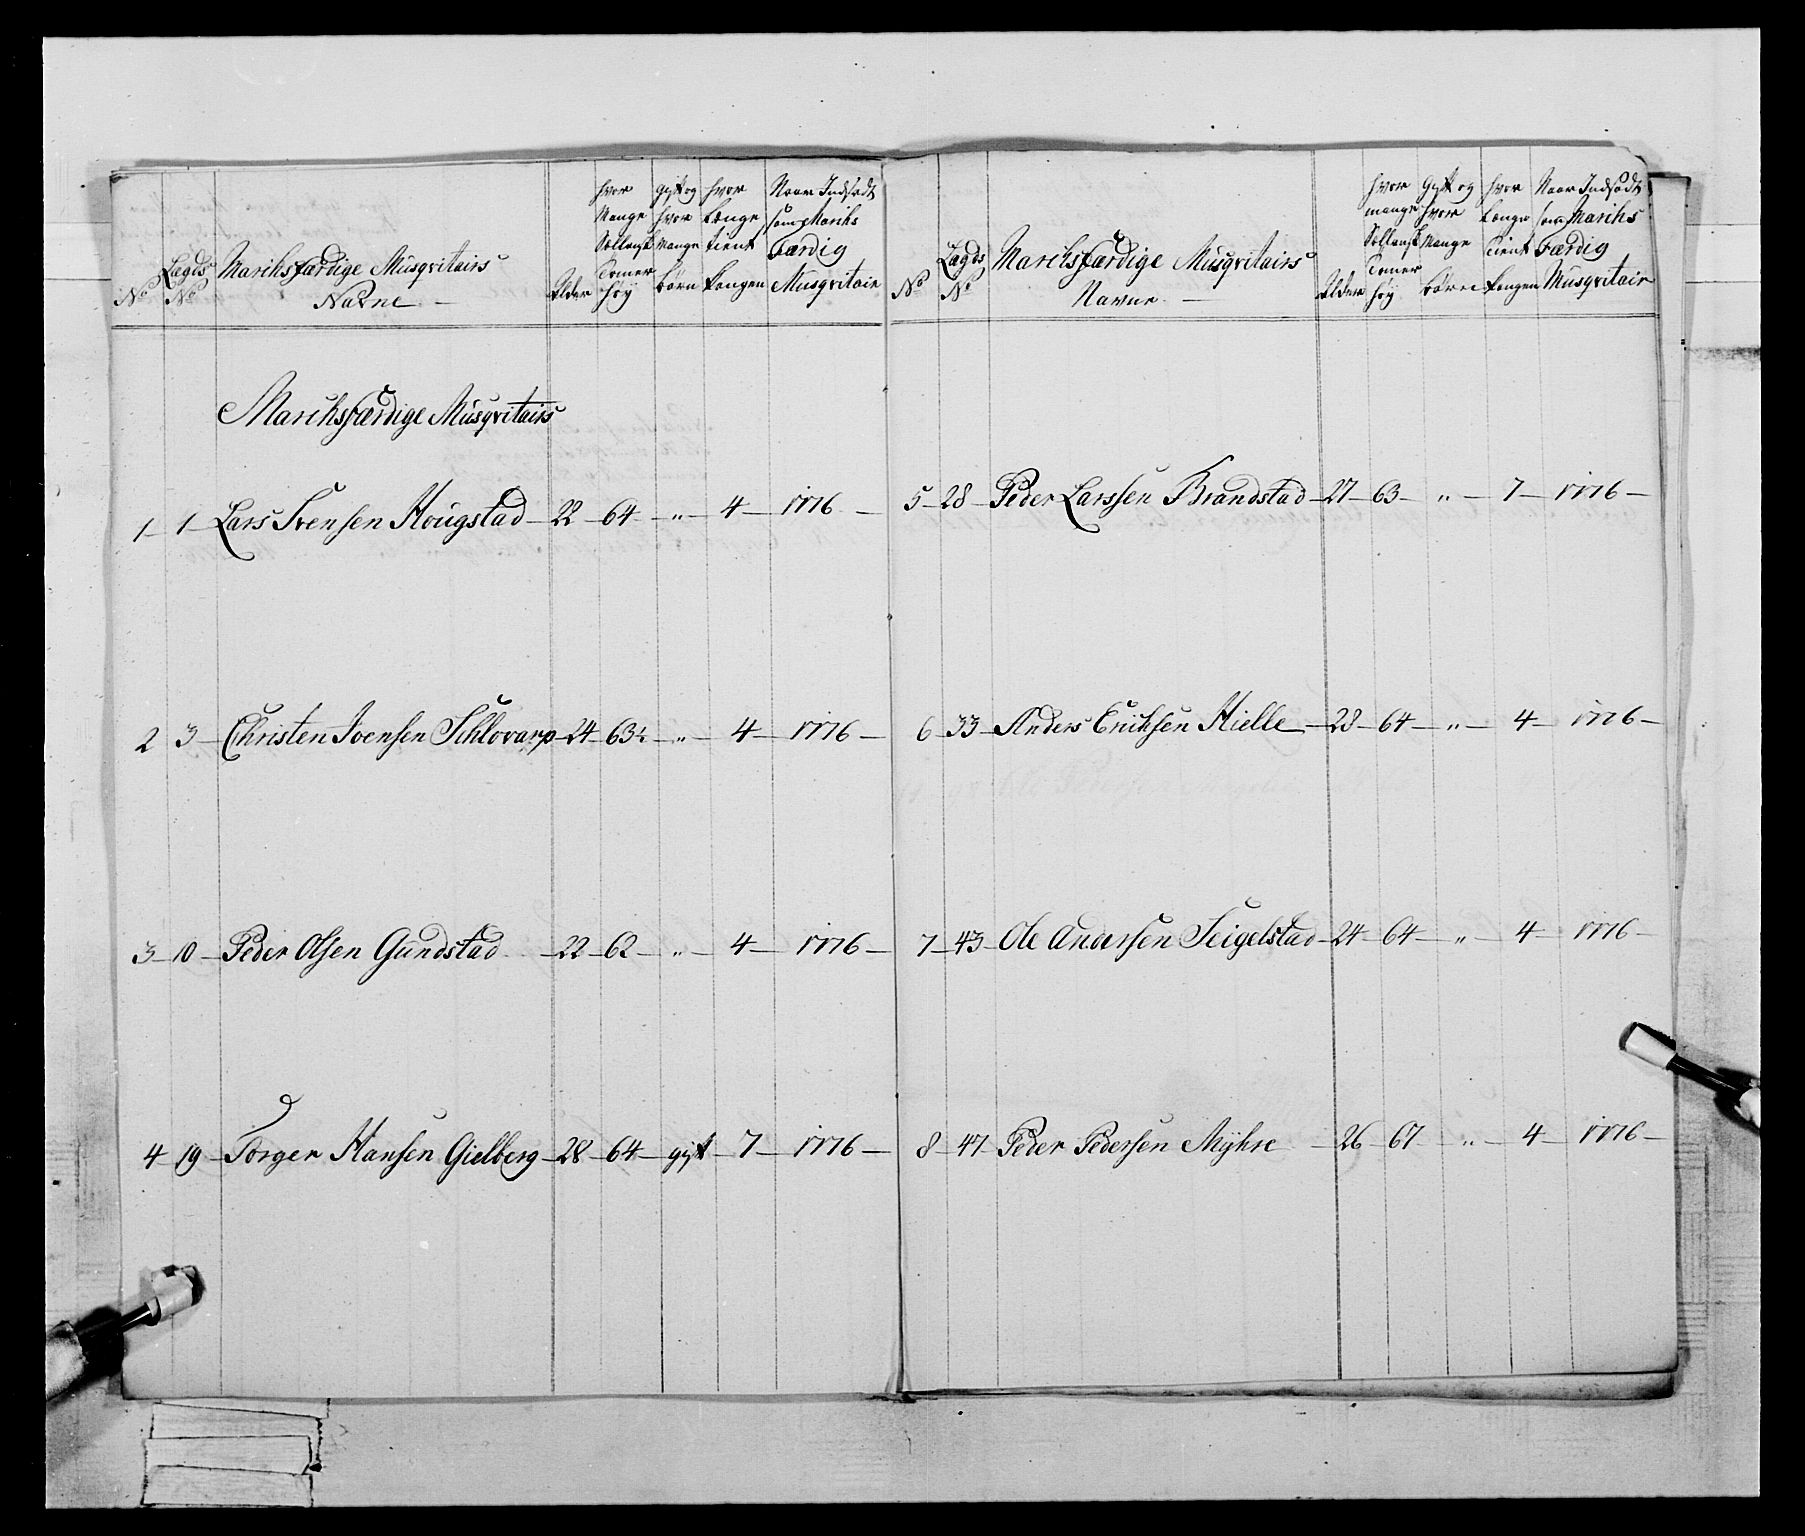 No
Lægds No
Marchsfærdige Musqvitairs Navne
Alder
hvor Mange Sollansk Tomer høy
gyft og hvor Mange børn
hvor Længe tient kongen
Naar Indsadt som Marchs Færdig Musqvitair
Marchsfærdige Musqvitairs
1 1 Lars Svensen Hougstad 22 64 " 4 1776
2 3 Christen Svensen Schlovarp 24 63½ " 4 1776
3 10 Peder Olsen Gundstad 22 62 " 4 1776
4 19 Torger Hansen Gielberg 28 64 gyft 7 1776
No
Lægds No
Marchsfærdige Musqvitairs Navne
Alder
hvor mange Sollansk Tomer høy
Gyft og hvor Mange børn
hvor Længe Tient kongen
Naar Indsadt som Marchs Færdig Musqvitair
5 28 Peder Larssen Brandstad 27 63 " 7 1776
6 33 Anders Erichsen Hielle 28 64 " 4 1776
7 43 Ole Andersen Seigelstad 24 64 " 4 1776
8 47 Peder Pedersen Mÿhre 26 67 " 4 1776